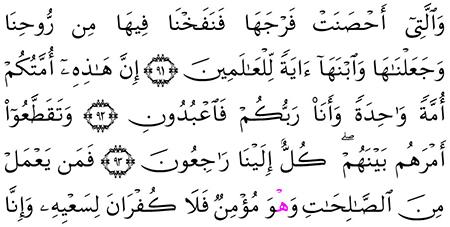 وَٱلَّتِىٓ أَحْصَنَتْ فَرْجَهَا فَنَفَخْنَا فِيهَا مِن رُّوحِنَا
وَجَعَلْنَـٰهَا وَٱبْنَهَآ ءَايَةً لِّلْعَـٰلَمِينَ ۝٩١ إِنَّ هَـٰذِهِۦٓ أُمَّتُكُمْ
أُمَّةً وَٰحِدَةً وَأَنَا۠ رَبُّكُمْ فَٱعْبُدُونِ ۝٩٢ وَتَقَطَّعُوٓا۟
أَمْرَهُم بَيْنَهُمْ ۖ كُلٌّ إِلَيْنَا رَٰجِعُونَ ۝٩٣ فَمَن يَعْمَلْ
مِنَ ٱلصَّـٰلِحَـٰتِ وَهْوَ مُؤْمِنٌ فَلَا كُفْرَانَ لِسَعْيِهِۦ وَإِنَّا